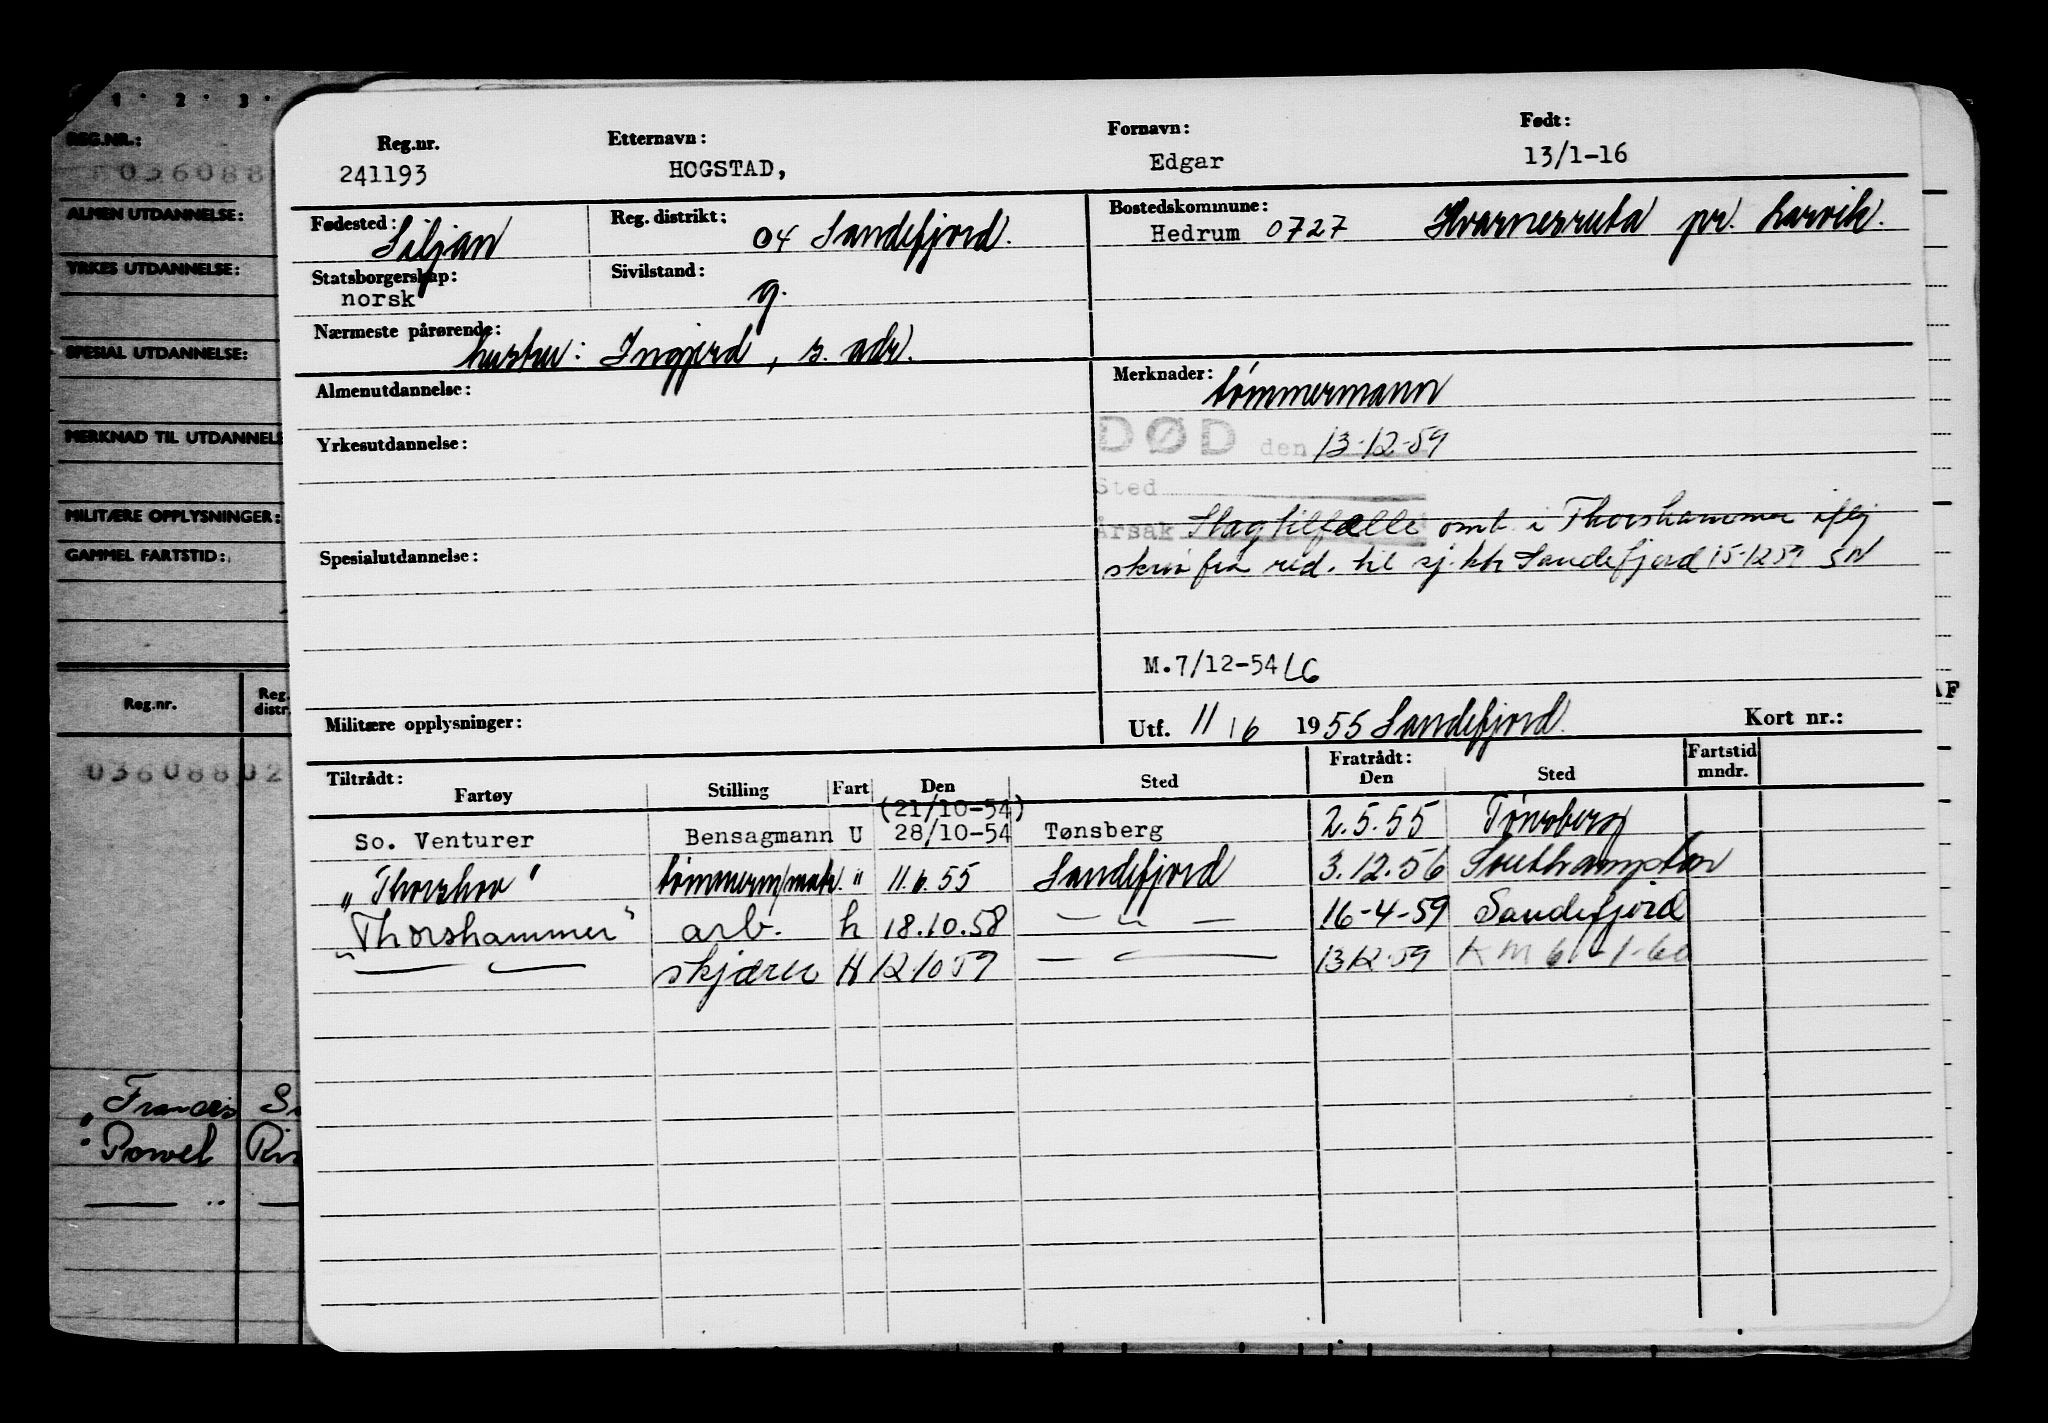 1 · 2 · 3 ·
REG.NR.:
036088
ALMEN UTDANNELSE:
YRKES UTDANNELSE:
SPESIAL UTDANNELSE:
MERKNAD TIL UTDANNELS
MILITÆRE OPPLYSNINGER:
GAMMEL FARTSTID:
Reg.nr. Reg. distr.
036088 02
"Francis S
" Powel Ri
— " —
Reg.nr. Etternavn: Fornavn: Født:
241193 HOGSTAD, Edgar 13/1-16
Fødested: Siljan Reg. distrikt: 04 Sandefjord. Bostedskommune: Hedrum 0727 Kvarnesruta pr. Larvik.
Statsborgerskap: norsk Sivilstand: g.
Nærmeste pårørende: hustru: Ingjerd, s. adr.
Almenutdannelse: Merknader: tømmermann
Yrkesutdannelse: DØD den 13-12-59
Sted
Årsak Slagtilfelle omb. i Thorshammer iflg
Spesialutdannelse: skriv fra red. til sj.ktr Sandefjord 15-12 59 SN
M.7/12-54
Militære opplysninger: Utf. 11/6 1955 Sandefjord. Kort nr.:
Tiltrådt: Fratrådt: Fartstid mndr.
Fartøy Stilling Fart Den Sted Den Sted
(21/10-54)
So. Venturer Bensagmann U 28/10-54 Tønsberg 2.5.55 Tønsberg
"Thorshov" tømmerm/matr. " 11.6.55 Sandefjord 3.12.56 Southampton
"Thorshammer" arb. h 18.10.58 — " — 16-4-59 Sandefjord
— " — skjærer H 12.10 59 — " — 13.12.59 KM 6-1-60
AF